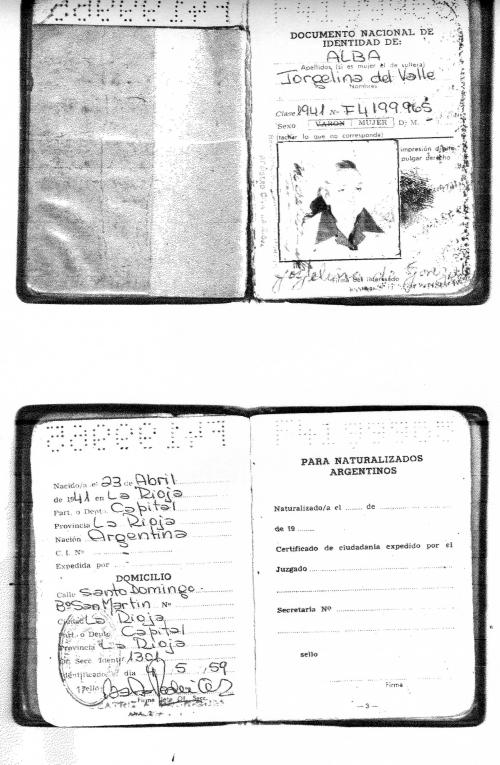 DOCUMENTO NACIONAL DE
IDENTIDAD DE:
ALBA
Apellidos (si es mujer el de soltera)
Jorgelina del Valle
Nombres
Clase 1941 Nº F4199965
Sexo VARON MUJER D. M.
(tachar lo que no corresponda)
impresión dígito
pulgar derecho
Firma del interesado
Nacido/a el 23 de Abril
de 1941 en La Rioja
Part. o Dept. Capital
Provincia La Rioja
Nación Argentina
C. I. Nº -
Expedida por -
DOMICILIO
Calle Santo Domingo
Bº San Martin Nº
Ciudad La Rioja
Part. o Depto. Capital
Provincia La Rioja
Of. Secc. Identif. 1301
Identificado el día 4 5 59
Sello
Firma Jefe Of. Secc.
PARA NATURALIZADOS
ARGENTINOS
Naturalizado/a el ........ de ................
de 19 ........
Certificado de ciudadanía expedido por el
Juzgado ................
Secretaría Nº ................
sello
Firma
— 3 —